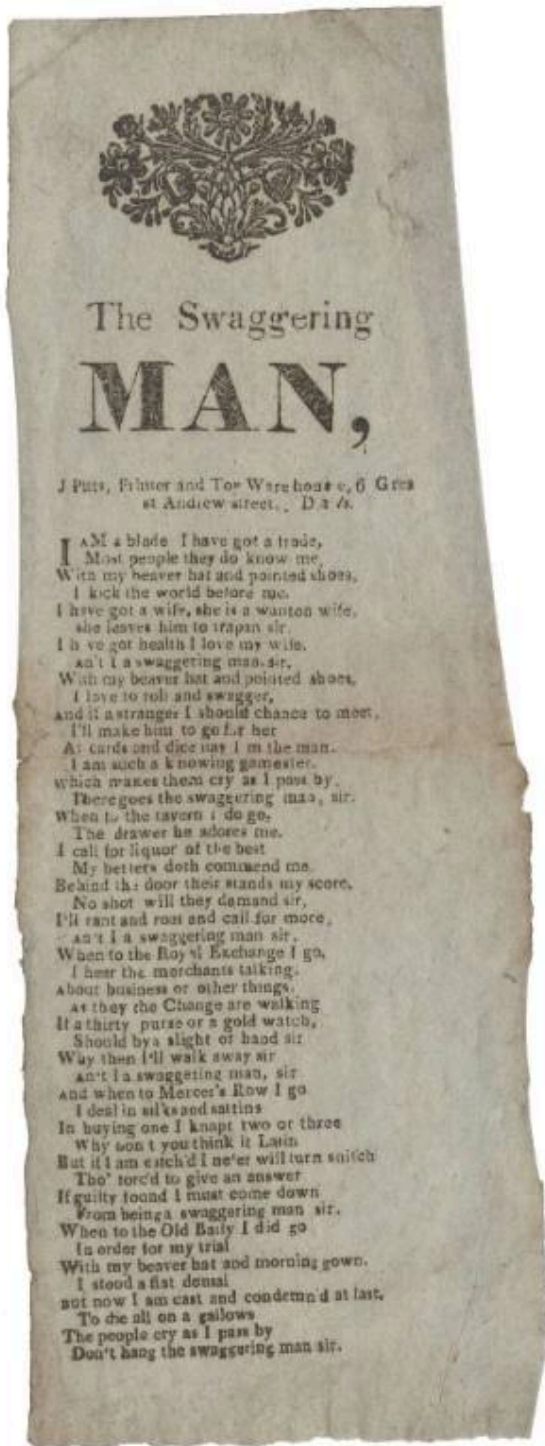 The Swaggering
MAN,
J Pitts, Printer and Toy Warehouse, 6 Grea
st Andrew street,
I AM a blade I have got a trade,
Most people they do know me,
With my beaver hat and pointed shoes,
I kick the world before me.
I have got a wife, she is a wanton wife,
she leaves him to trapan sir.
I h ve got health I love my wife,
an't I a swaggering man, sir,
With my beaver hat and pointed shoes,
I love to rob and swagger,
and if a stranger I should chance to meet,
I'll make him to go for her
At cards and dice I m the man.
I am such a knowing gamester,
which makes them cry as I pass by,
There goes the swaggering man, sir.
When to the tavern I do go,
The drawer he adores me.
I call for liquor of the best
My betters doth commend me
Behind the door their stands my score,
No shot will they demand sir,
I'll rant and roar and call for more,
an't I a swaggering man sir,
When to the Royal Exchange I go,
I hear the merchants talking.
about business or other things.
as they the Change are walking
If a thirty purse or a gold watch,
Should by a slight of hand sir
Why then I'll walk away sir
an't I a swaggering man, sir
And when to Mercer's Row I go
I deal in silks and sattins
In buying one I knapt two or three
Why don't you think it Latin
But if I am catch'd I ne'er will turn snitch
Tho' forc'd to give an answer
If guilty found I must come down
From being a swaggering man sir.
When to the Old Baily I did go
In order for my trial
With my beaver hat and morning gown.
I stood a flat denial
but now I am cast and condemn d at last,
To die all on a gallows
The people cry as I pass by
Don't hang the swaggering man sir.